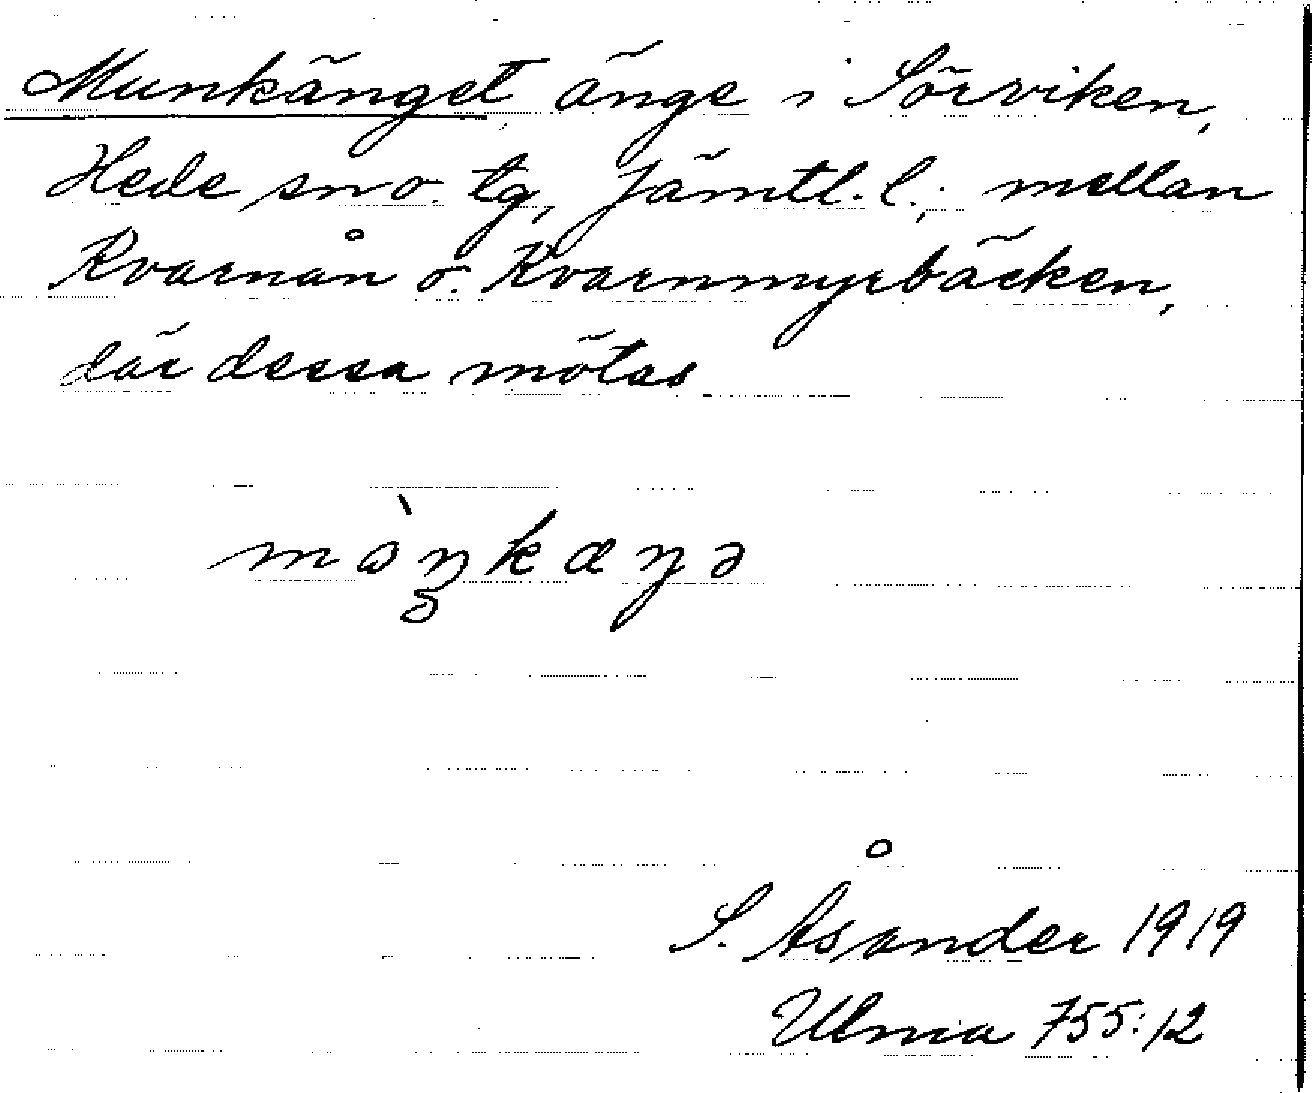 Munkänget änge i Sörviken,
Hede sn o. tg, Jämtl. l.; mellan
Kvarnån o. Kvarnmyrbäcken,
där dessa mötas
S. Åsander 1919
Ulma 755:12